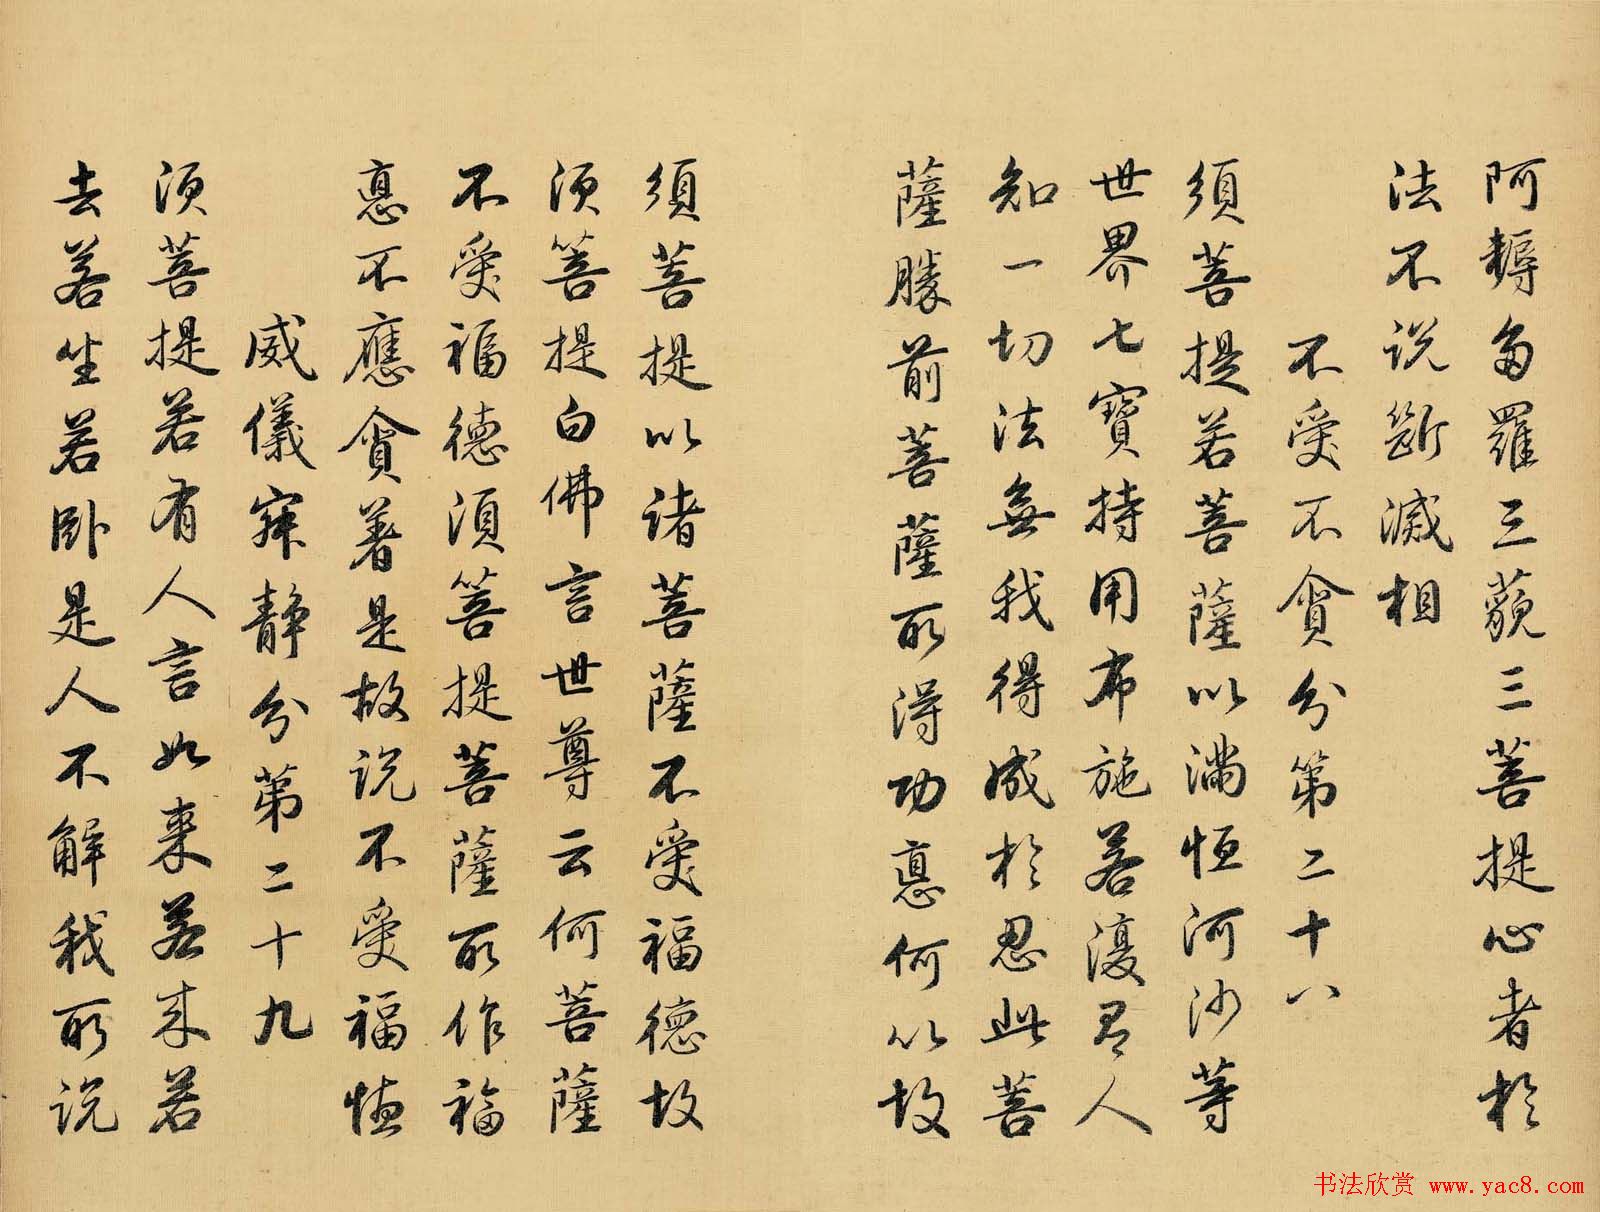 阿耨多羅三藐三菩提心者於
法不说斷滅相
不受不貪分第二十八
須菩提若菩薩以滿恒河沙等
世界七寶持用布施若復有人
知一切法無我得成於忍此菩
薩勝前菩薩所得功悳何以故
須菩提以诸菩薩不受福德故
須菩提白佛言世尊云何菩薩
不受福德須菩提菩薩所作福
悳不應貪著是故说不受福德
威儀寂静分第二十九
須菩提若有人言如来若来若
去若坐若卧是人不解我所说
书法欣赏 www.yac8.com